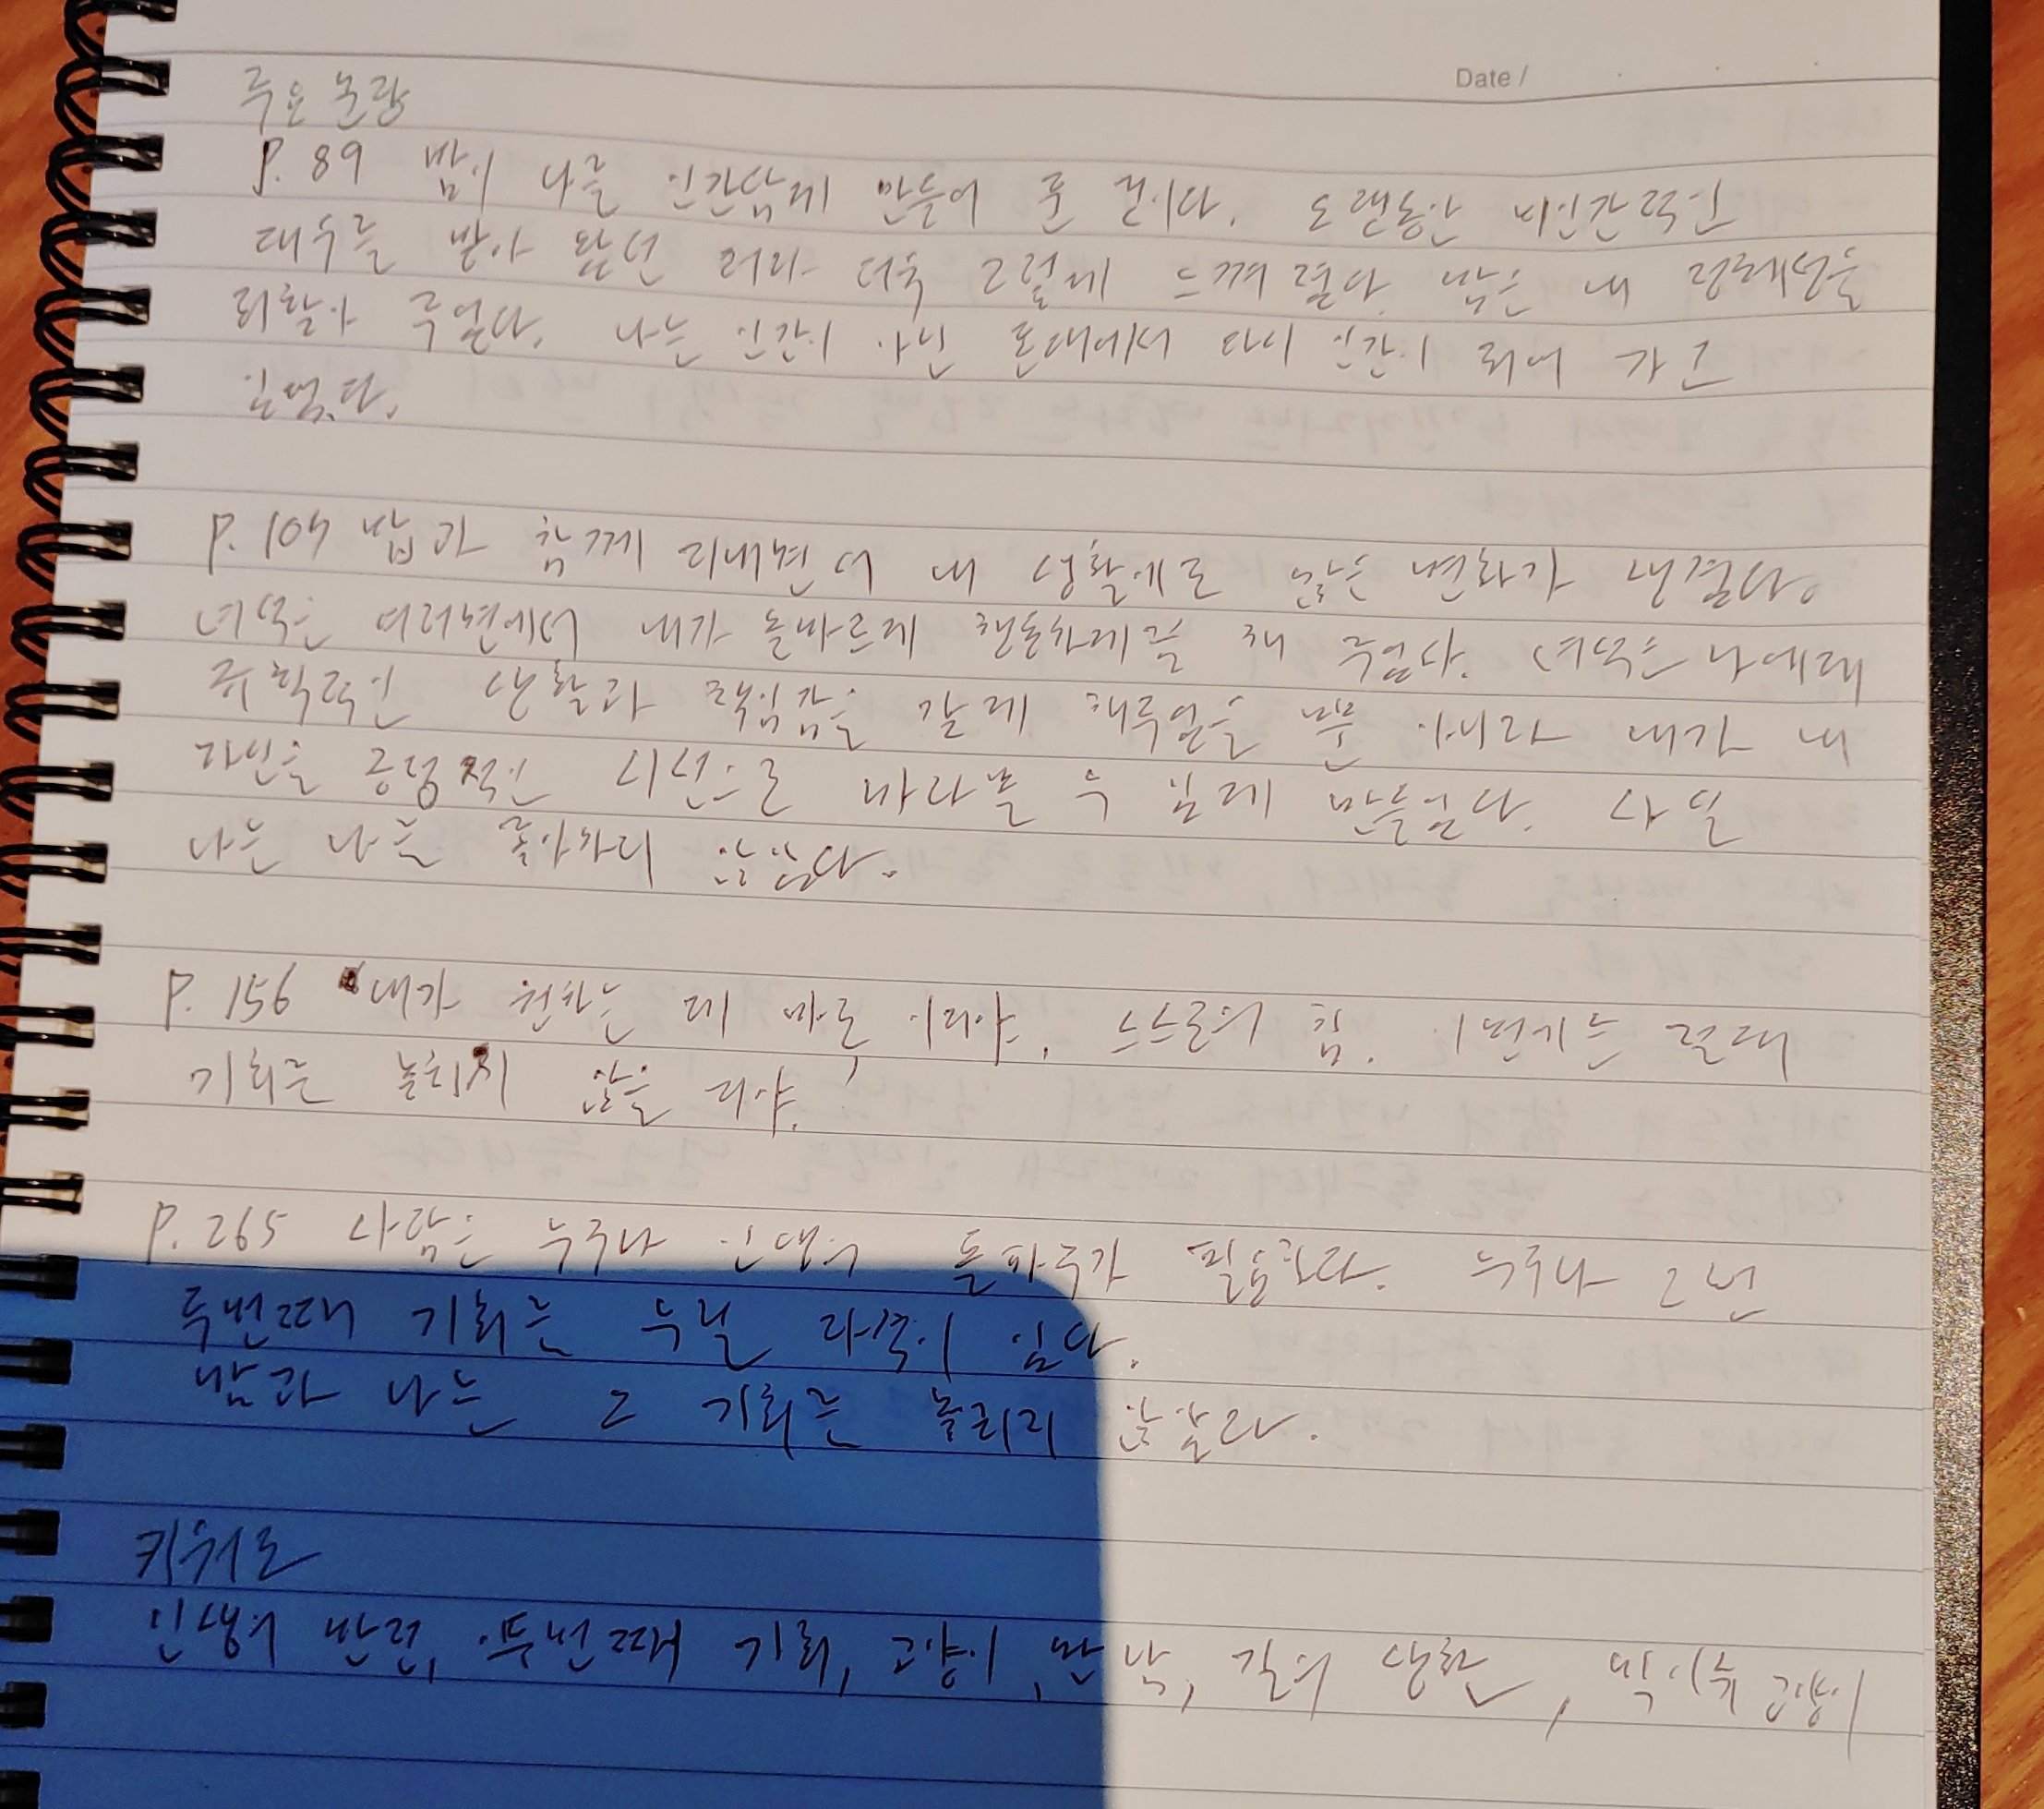 Date /
주요 문장
P. 89 밥이 나를 인간답게 만들어 준 것이다. 오랫동안 비인간적인
대우를 받아 왔던 터라 더욱 그렇게 느껴졌다. 밥은 내 정체성을
되찾아 주었다. 나는 인간이 아닌 존재에서 다시 인간이 되어 가고
있었다.
P. 104 밥과 함께 지내면서 내 생활에도 많은 변화가 생겼다.
녀석은 여러면에서 내가 올바르게 행동하게끔 해 주었다. 녀석은 나에게
규칙적인 생활과 책임감을 갖게 해주었을 뿐 아니라 내가 내
자신을 긍정적인 시선으로 바라볼 수 있게 만들었다. 사실
나는 나를 좋아하지 않았다.
P. 156 내가 원하는 게 바로 이거야. 스스로의 힘. 이번기는 절대
기회를 놓치지 않을 거야.
P. 265 사람은 누구나 인생의 돌파구가 필요하다. 누구나 그런
두번째 기회를 누릴 자격이 있다.
밥과 나는 그 기회를 놓치지 않았다.
키워드
인생의 반전, 두번째 기회, 고양이, 만남, 길의 생활, 빅이슈 고양이